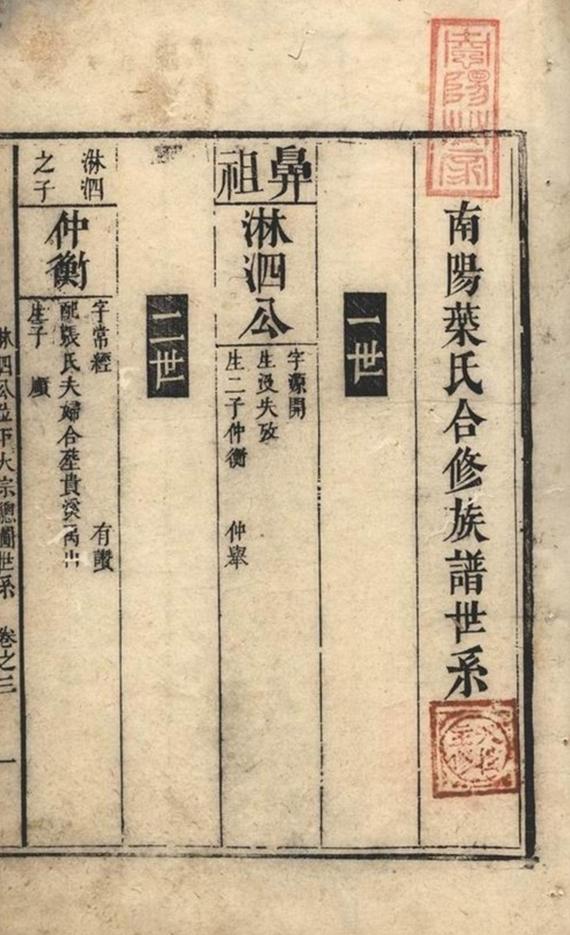 南陽世家
南陽葉氏合修族譜世系
一世
鼻祖
淋泗公
字源開
生沒失攷
生二子仲衡 仲舉
二世
淋泗
之子
仲衡
字常經 有讚
配張氏夫婦合塟貴溪
生子
淋泗公位下大宗總圖世系 卷之三 一